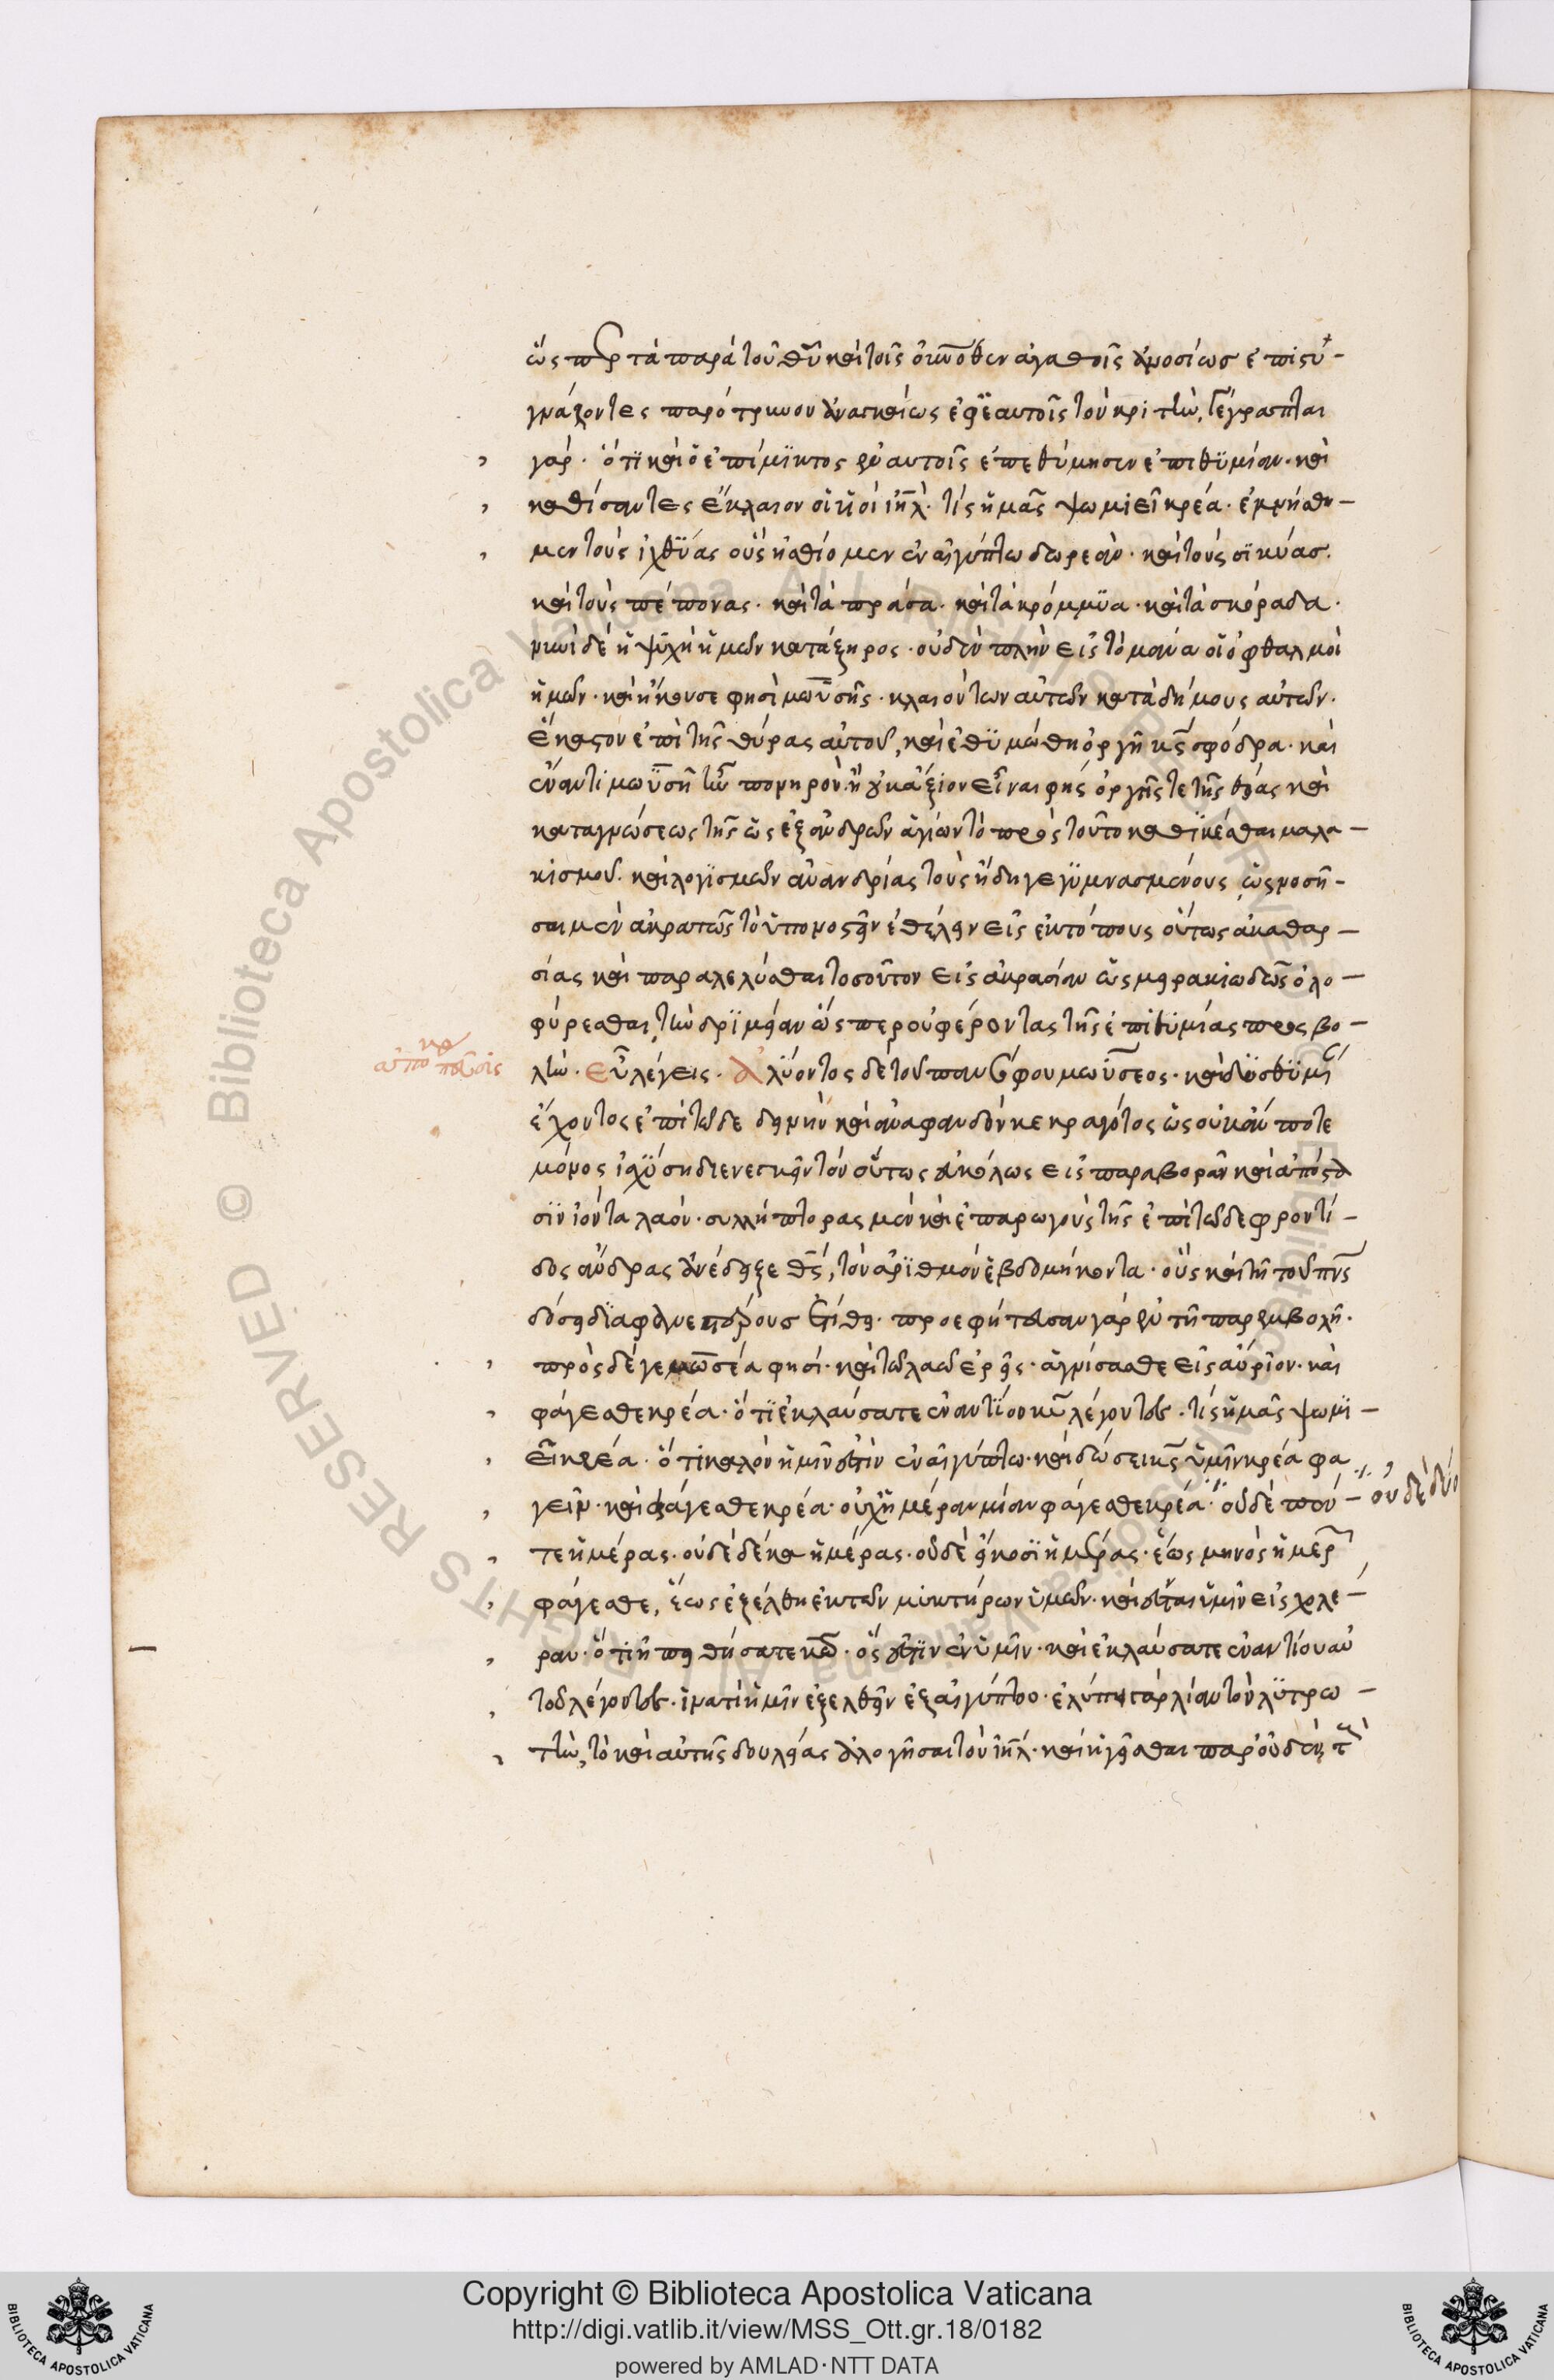 ὥσπερ τὰ παρὰ τοῦ θῦ καὶ τοῖς οἴκοθεν ἀγαθοῖς ἀνοσίως ἐπισυ-
νάπτοντες παρότρυνον ἀναγκαίως ἐφ' ἑαυτοῖς τὸν κριτήν. γέγραπται
γάρ. ὅτι καὶ ὁ ἐπίμικτος ἐν αὐτοῖς ἐπεθύμησεν ἐπιθυμίαν. καὶ
καθίσαντες ἔκλαιον οἱ υἱοὶ ιηλ. τίς ἡμᾶς ψωμιεῖ κρέα. ἐμνήσθη-
μεν τοὺς ἰχθύας οὓς ἠσθίομεν ἐν αἰγύπτω δωρεάν. καὶ τοὺς σικύας.
καὶ τοὺς πέπονας. καὶ τὰ πράσα. καὶ τὰ κρόμμυα. καὶ τὰ σκόραδα.
νυνὶ δὲ ἡ ψυχὴ ἡμῶν κατάξηρος. οὐδὲν πλὴν εἰς τὸ μάννα οἱ ὀφθαλμοὶ
ἡμῶν. καὶ ἤκουσε φησὶ μωϋσῆς. κλαιόντων αὐτῶν κατὰ δήμους αὐτῶν.
ἕκαστον ἐπὶ τῆς θύρας αὐτοῦ, καὶ ἐθυμώθη ὀργῆ κς σφόδρα. καὶ
ἐναντι μωϋσῆ ἦν πονηρόν. ἢ οὐκ ἄξιον εἶναι φὴς ὀργῆς τε τῆς θείας καὶ
καταγνώσεως τῆς ὡς ἐξ ἀνδρῶν ἁγίων τὸ πρὸς τοῦτο καθικέσθαι μαλα-
κισμοῦ. καὶ λογισμῶν ἀνανδρίας τοὺς ἤδη γεγυμνασμένους, ὡς νοσῆ-
σαι μὲν ἀκρατῶς τὸ ὑπονοστεῖν ἐθέλειν εἰς ἐκτόπους οὕτως ἀκαθαρ-
σίας καὶ παραλελύσθαι τοσοῦτον εἰς ἀκρασίαν ὡς μειρακιωδῶς ὀλο-
φύρεσθαι, τὴν δριμεῖαν ὥσπερ οὐ φέροντας τῆς ἐπιθυμίας προσβο-
λήν. εὖ λέγεις. ἀλύοντος δὲ τοῦ πανσόφου μωϋσέος. καὶ δυσθυμί
ἔχοντος ἐπὶ τῶδε δεινὴν καὶ ἀναφανδὸν κεκραγότος ὡς οὐκ ἄν ποτε
μόνος ἰσχύση διενεγκεῖν τὸν οὕτως εὐκόλως εἰς παραφορὰν καὶ ἀποστα
σιν ἰόντα λαόν. συλλήπτορας μὲν καὶ ἐπαρωγοὺς τῆς ἐπὶ τῶδε φροντί-
δος ἄνδρας ἀνέδειξε θς, τὸν ἀριθμὸν ἑβδομήκοντα. οὓς καὶ τῆ τοῦ πνς
δόσει διαφανεστέρους ἐτίθει. προεφήτευσαν γὰρ ἐν τῆ παρεμβολῆ.
πρὸς δέ γε μωσέα φησί. καὶ τῶ λαῶ ἐρεῖς. ἁγνίσασθε εἰς αὔριον. καὶ
φάγεσθε κρέα. ὅτι ἐκλαύσατε ἐναντίον κῦ λέγοντες. τίς ἡμᾶς ψωμι-
εῖ κρέα. ὅτι καλὸν ἡμῖν ἐστὶν ἐν αἰγύπτω. καὶ δώσει κς ὑμῖν κρέα φα
γεῖν. καὶ φάγεσθε κρέα. οὐχ ἡμέραν μίαν φάγεσθε κρέα. οὐδὲ πέν- οὐδὲ δύο
τε ἡμέρας. οὐδὲ δέκα ἡμέρας. οὐδὲ εἴκοσι ἡμέρας. ἕως μηνὸς ἡμερ
φάγεσθε, ἕως ἐξέλθη ἐκ τῶν μυκτήρων ὑμῶν. καὶ ἔσται ὑμῖν εἰς χολέ-
ραν. ὅτι ἠπειθήσατε κω. ὅς ἐστιν ἐν ὑμῖν. καὶ ἐκλαύσατε ἐναντίον αὐ
τοῦ λέγοντες. ἵνα τί ἡμῖν ἐξελθεῖν ἐξ αἰγύπτου. ἐλύπει γὰρ λίαν τὸν λυτρω-
τήν, τὸ καὶ αὐτῆς δουλείας ἀλογῆσαι τὸν ιηλ. καὶ ἡγεῖσθαι παρ' οὐδὲν τ
Copyright © Biblioteca Apostolica Vaticana
http://digi.vatlib.it/view/MSS_Ott.gr.18/0182
powered by AMLAD·NTT DATA
BIBLIOTECA APOSTOLICA VATICANA
BIBLIOTECA APOSTOLICA VATICANA